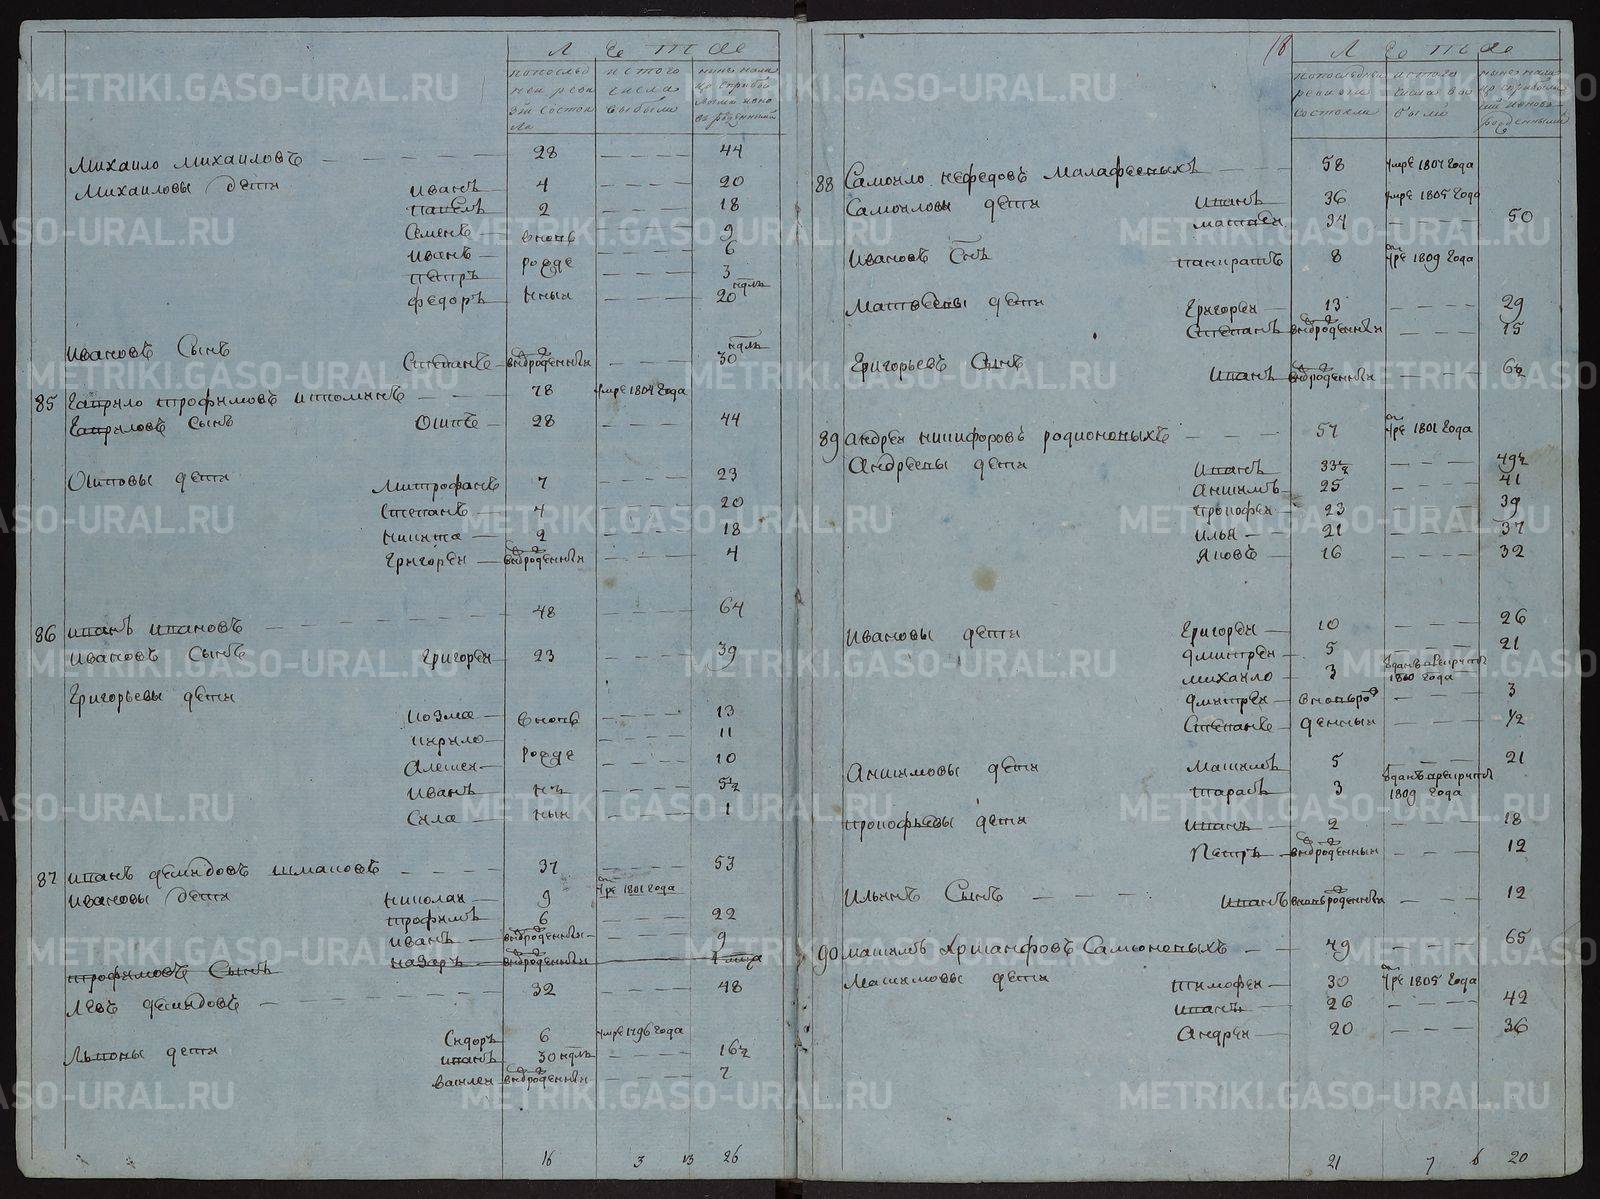 Л е т а
попослед ней реви зiи состоя ло
из того числа выбыло
ныне нали цо с прибы лыми ново рожденными
Михаило Михаиловъ 28 44
Михаиловы дети Иванъ 4 20
Павелъ 2 18
Семенъ вновь 9
Иванъ 6
рожде
Петръ 3
Федоръ нныя 20 н҃длъ
Ивановъ Сынъ Степанъ внврожденныи 30 н҃длъ
85 Гаврило Трофимовъ 78 умре 1804 года
Гавриловъ сынъ Осипъ 28 44
Осиповы дети Митрофанъ 7 23
Степанъ 4 20
Никита 2 18
Григореи внврожденныи 4
86 Иванъ Ивановъ 48 64
Ивановъ Сынъ Григореи 23 39
Григорьевы дети
Козма вновь 13
Кирило 11
Алексеи рожде 10
Иванъ 5½
Сила ныи 1
87 Иванъ Демидовъ Шмаковъ 37 53
Ивановы дети Николаи 9 умре 1801 года
Трофимъ 6 22
Иванъ внврожденныи 9
Трофимовъ Сынъ Назаръ внврожденныи
Левъ Демидовъ 32 48
Сидоръ 6 умре 1796 года
Львовы дети Иванъ 30 ндлъ 16½
Василеи внврожденныи 7
16 3 13 26
18
Л е т а
попоследнеи ревизiи состояло
из того числа вы было
ныне нали цо с прибылы ми ново рожденными
88 Самоило Нефедовъ Малафеевыхъ 58 умре 1807 года
Самоиловы дети Иванъ 36 умре 1805 года
Матвеи 34 50
Ивановъ Снъ Панкратъ 8 умре 1809 года
Матвеевы дети Григореи 13 29
Степанъ внврожденныи 15
Григорьевъ Сынъ Иванъ внврожденныи 6½
89 Андреи Никифоровъ Родионовыхъ 57 умре 1801 года
Андреевы дети Иванъ 33½ 49½
Акимъ 25 41
Прокофеи 23 39
Илья 21 37
Яковъ 16 32
Ивановы дети Григореи 10 26
Дмитреи 5 21
Михаило 3 отданъ в рекруты 1810 года
Дмитреи вновьрож 3
Степанъ денныи ½
Акимовы дети Максимъ 5 21
Тарасъ 3 отданъ в рекруты 1809 года
Прокофьевы дети Иванъ 2 18
Петръ внврожденныи 12
Ильинъ Сынъ Иванъ вновьрожденныи 12
90 Максимъ Хрисанфовъ Самсоновыхъ 49 65
Максимовы дети Тимофеи 30 умре 1805 года
Иванъ 26 42
Андреи 20 36
21 7 6 20
METRIKI.GASO-URAL.RU